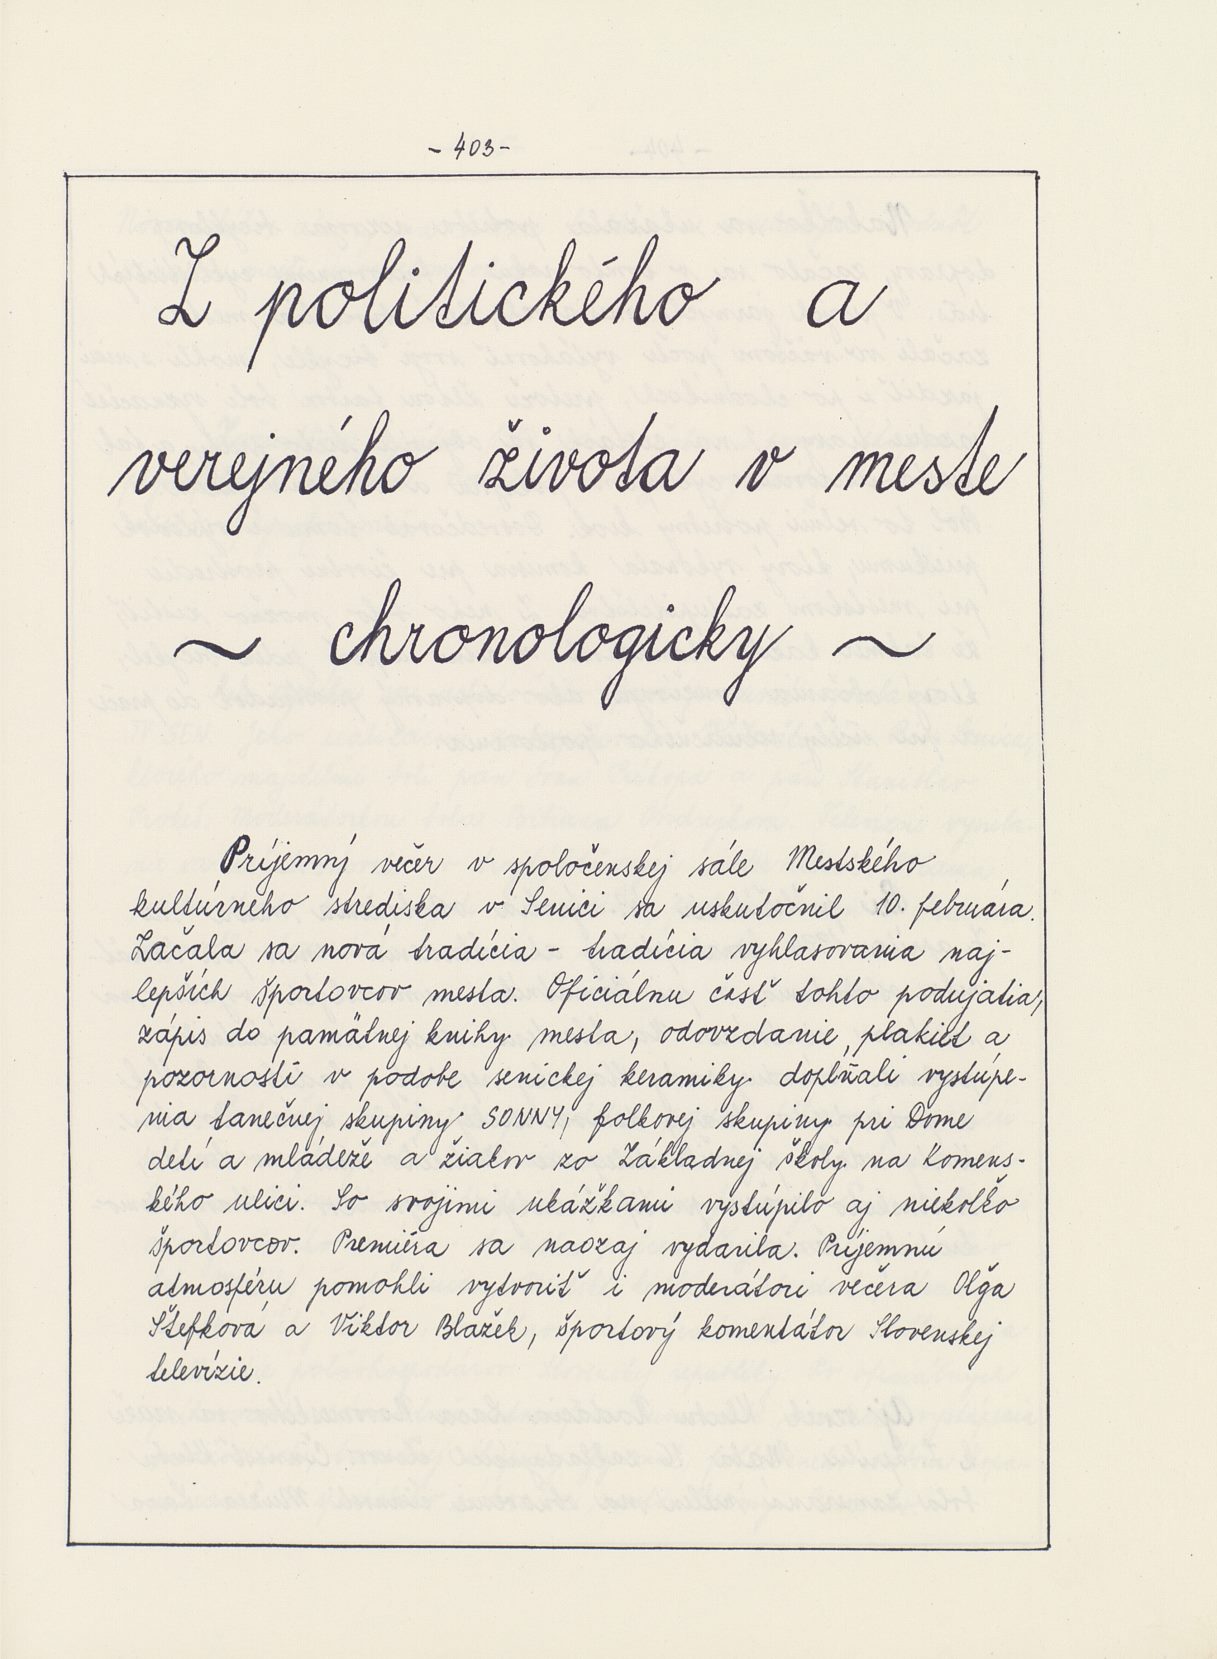 - 403 -
Z politického a
verejného života v meste
~ chronologicky ~
Príjemný večer v spoločenskej sále Mestského
kultúrneho strediska v Senici sa uskutočnil 10. februára.
Začala sa nová tradícia - tradícia vyhlasovania naj-
lepších športovcov mesta. Oficiálnu časť tohto podujatia,
zápis do pamätnej knihy mesta, odovzdanie plakiet a
pozorností v podobe senickej keramiky doplňali vystúpe-
nia tanečnej skupiny SONNY, folkovej skupiny pri Dome
detí a mládeže a žiakov zo Základnej školy na Komens-
kého ulici. So svojimi ukážkami vystúpilo aj niekoľko
športovcov. Premiéra sa naozaj vydarila. Príjemnú
atmosféru pomohli vytvoriť i moderátori večera Oľga
Štefková a Viktor Blažek, športový komentátor Slovenskej
televízie.